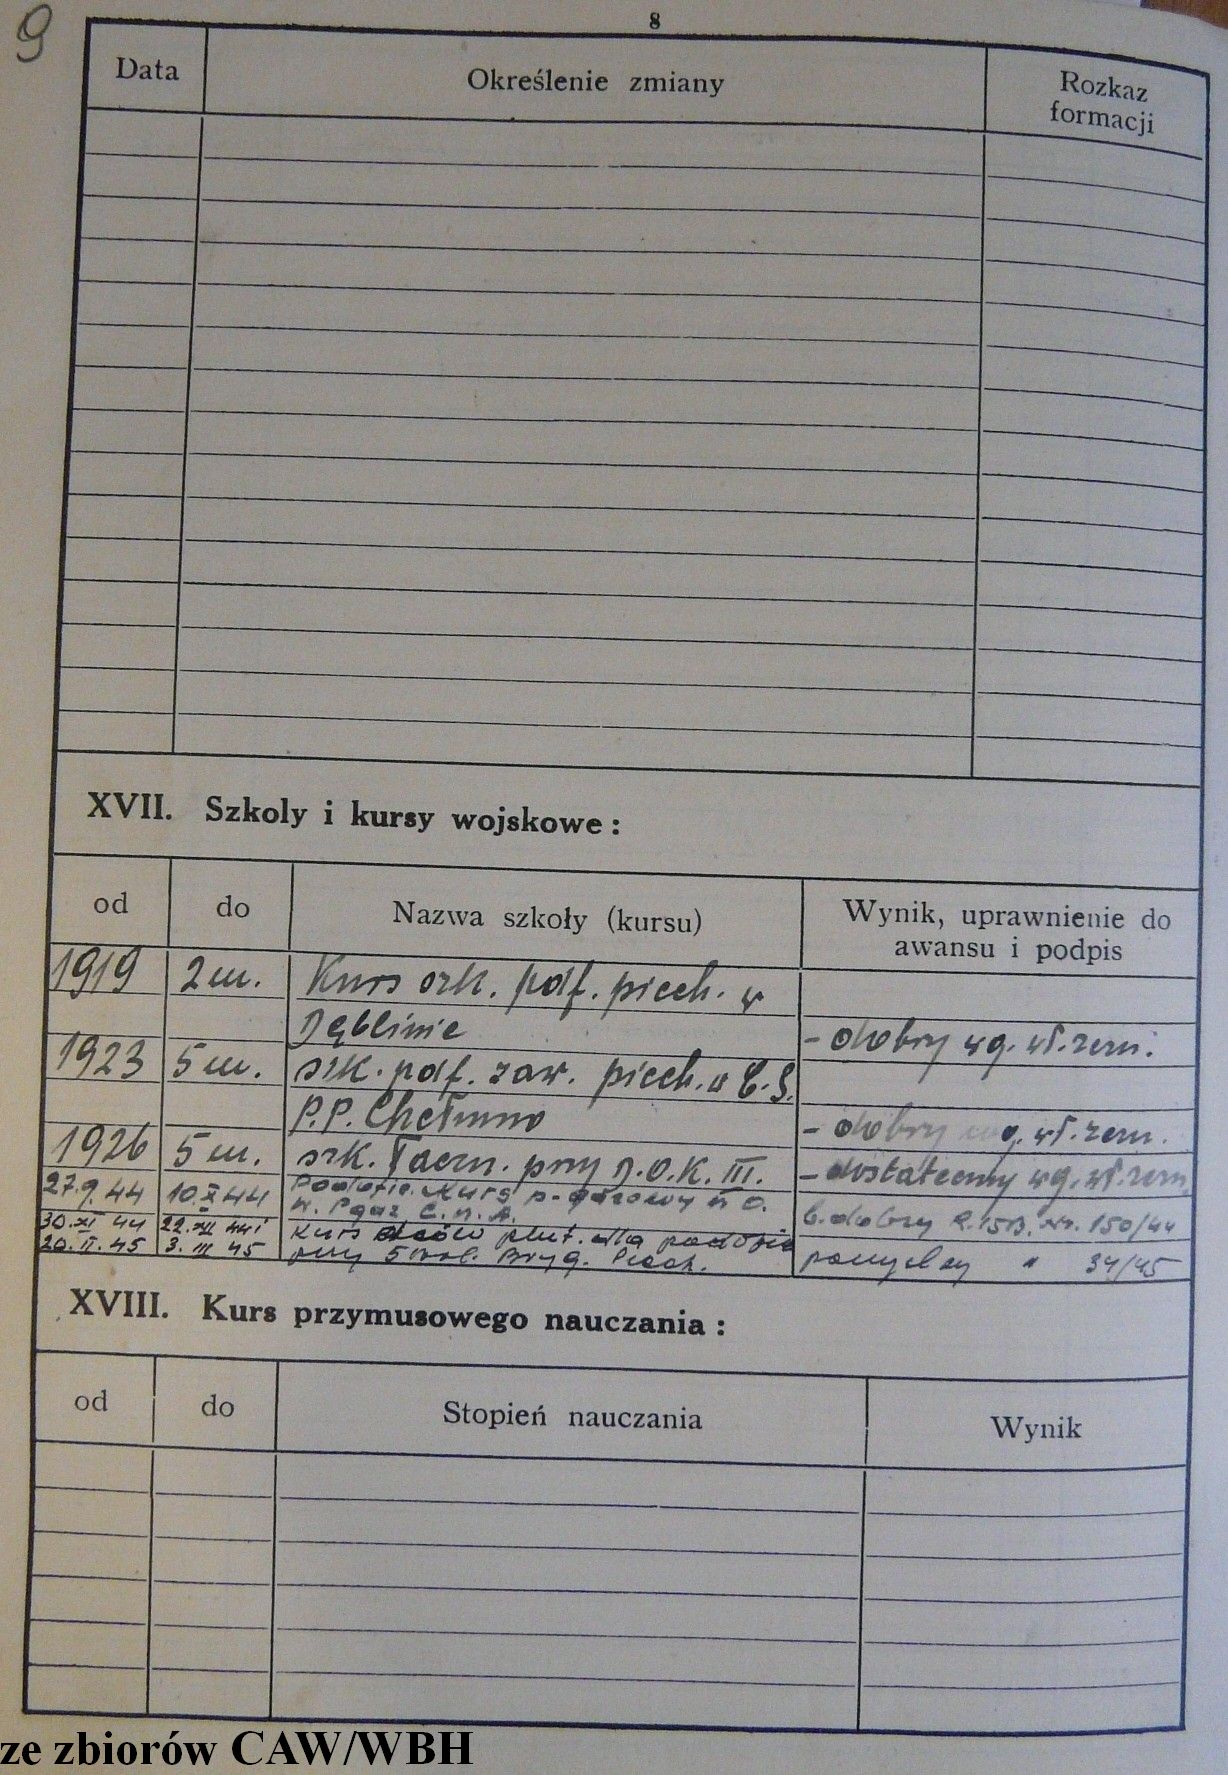 9
8
Data Określenie zmiany Rozkaz
formacji
XVII. Szkoły i kursy wojskowe :
od do Nazwa szkoły (kursu) Wynik, uprawnienie do
awansu i podpis
1919 2 m. Kurs szk. pdf. piech. w
Dęblinie - dobry wg. wł. zezn.
1923 5 m. szk. pdf. zaw. piech. w C.S.
P.P. Chełmno - dobry wg. wł. zezn.
1926 5 m. szk. łączn. przy D.O.K. III. - dostateczny wg. wł. zezn.
27.9.44 10.X 44 Podofic. Kurs p-gazowy
b. dobry R. 15 B. Nr. 150/44
30.XI 44 22.XII 44 Kurs dców plut. dla podofic
20.II.45 3.III 45 przy 5 Bryg. Piech. pomyślny " 34/45
XVIII. Kurs przymusowego nauczania :
od do Stopień nauczania Wynik
ze zbiorów CAW/WBH